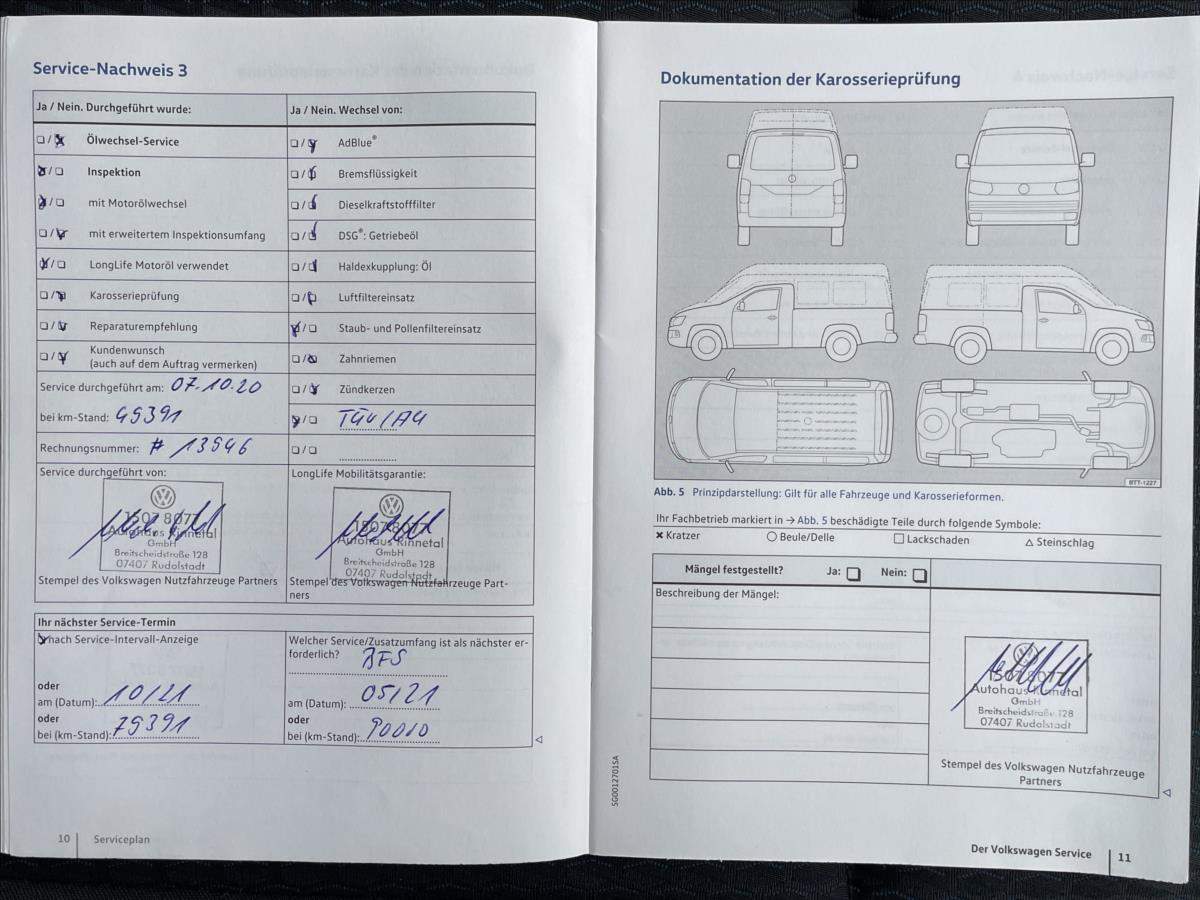 Service-Nachweis 3
Ja / Nein. Durchgeführt wurde:
Ölwechsel-Service
Inspektion
mit Motorölwechsel
mit erweitertem Inspektionsumfang
LongLife Motoröl verwendet
Karosserieprüfung
Reparaturempfehlung
Kundenwunsch
(auch auf dem Auftrag vermerken)
Service durchgeführt am: 07.10.20
bei km-Stand: 49391
Rechnungsnummer: # 13546
Service durchgeführt von:
1507 8077
Autohaus Rinnetal
GmbH
Breitscheidstraße 128
07407 Rudolstadt
Stempel des Volkswagen Nutzfahrzeuge Partners
Ja / Nein. Wechsel von:
AdBlue®
Bremsflüssigkeit
Dieselkraftstofffilter
DSG®: Getriebeöl
Haldexkupplung: Öl
Luftfiltereinsatz
Staub- und Pollenfiltereinsatz
Zahnriemen
Zündkerzen
TÜV/AU
LongLife Mobilitätsgarantie:
1507 8077
Autohaus Rinnetal
GmbH
Breitscheidstraße 128
07407 Rudolstadt
Stempel des Volkswagen Nutzfahrzeuge Part-
ners
Ihr nächster Service-Termin
nach Service-Intervall-Anzeige
oder
am (Datum): 10/21
oder
bei (km-Stand): 79391
Welcher Service/Zusatzumfang ist als nächster er-
forderlich? BFS
am (Datum): 05/21
oder
bei (km-Stand): 90010
10 Serviceplan
Dokumentation der Karosserieprüfung
BTT-1227
Abb. 5 Prinzipdarstellung: Gilt für alle Fahrzeuge und Karosserieformen.
Ihr Fachbetrieb markiert in → Abb. 5 beschädigte Teile durch folgende Symbole:
Kratzer Beule/Delle Lackschaden Steinschlag
Mängel festgestellt? Ja: Nein:
Beschreibung der Mängel:
1507 8077
Autohaus Rinnetal
GmbH
Breitscheidstraße 128
07407 Rudolstadt
Stempel des Volkswagen Nutzfahrzeuge
Partners
SG0012701SA
Der Volkswagen Service 11